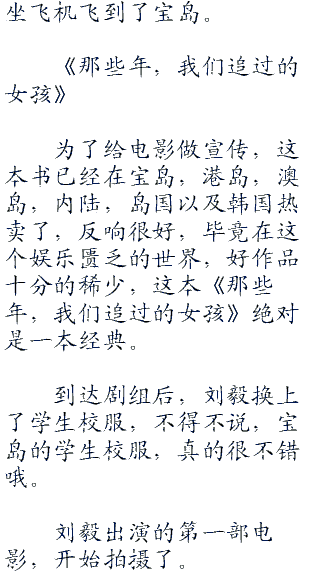 坐飞机飞到了宝岛。
《那些年，我们追过的
女孩》
为了给电影做宣传，这
本书已经在宝岛，港岛，澳
岛，内陆，岛国以及韩国热
卖了，反响很好，毕竟在这
个娱乐匮乏的世界，好作品
十分的稀少，这本《那些
年，我们追过的女孩》绝对
是一本经典。
到达剧组后，刘毅换上
了学生校服，不得不说，宝
岛的学生校服，真的很不错
哦。
刘毅出演的第一部电
影，开始拍摄了。